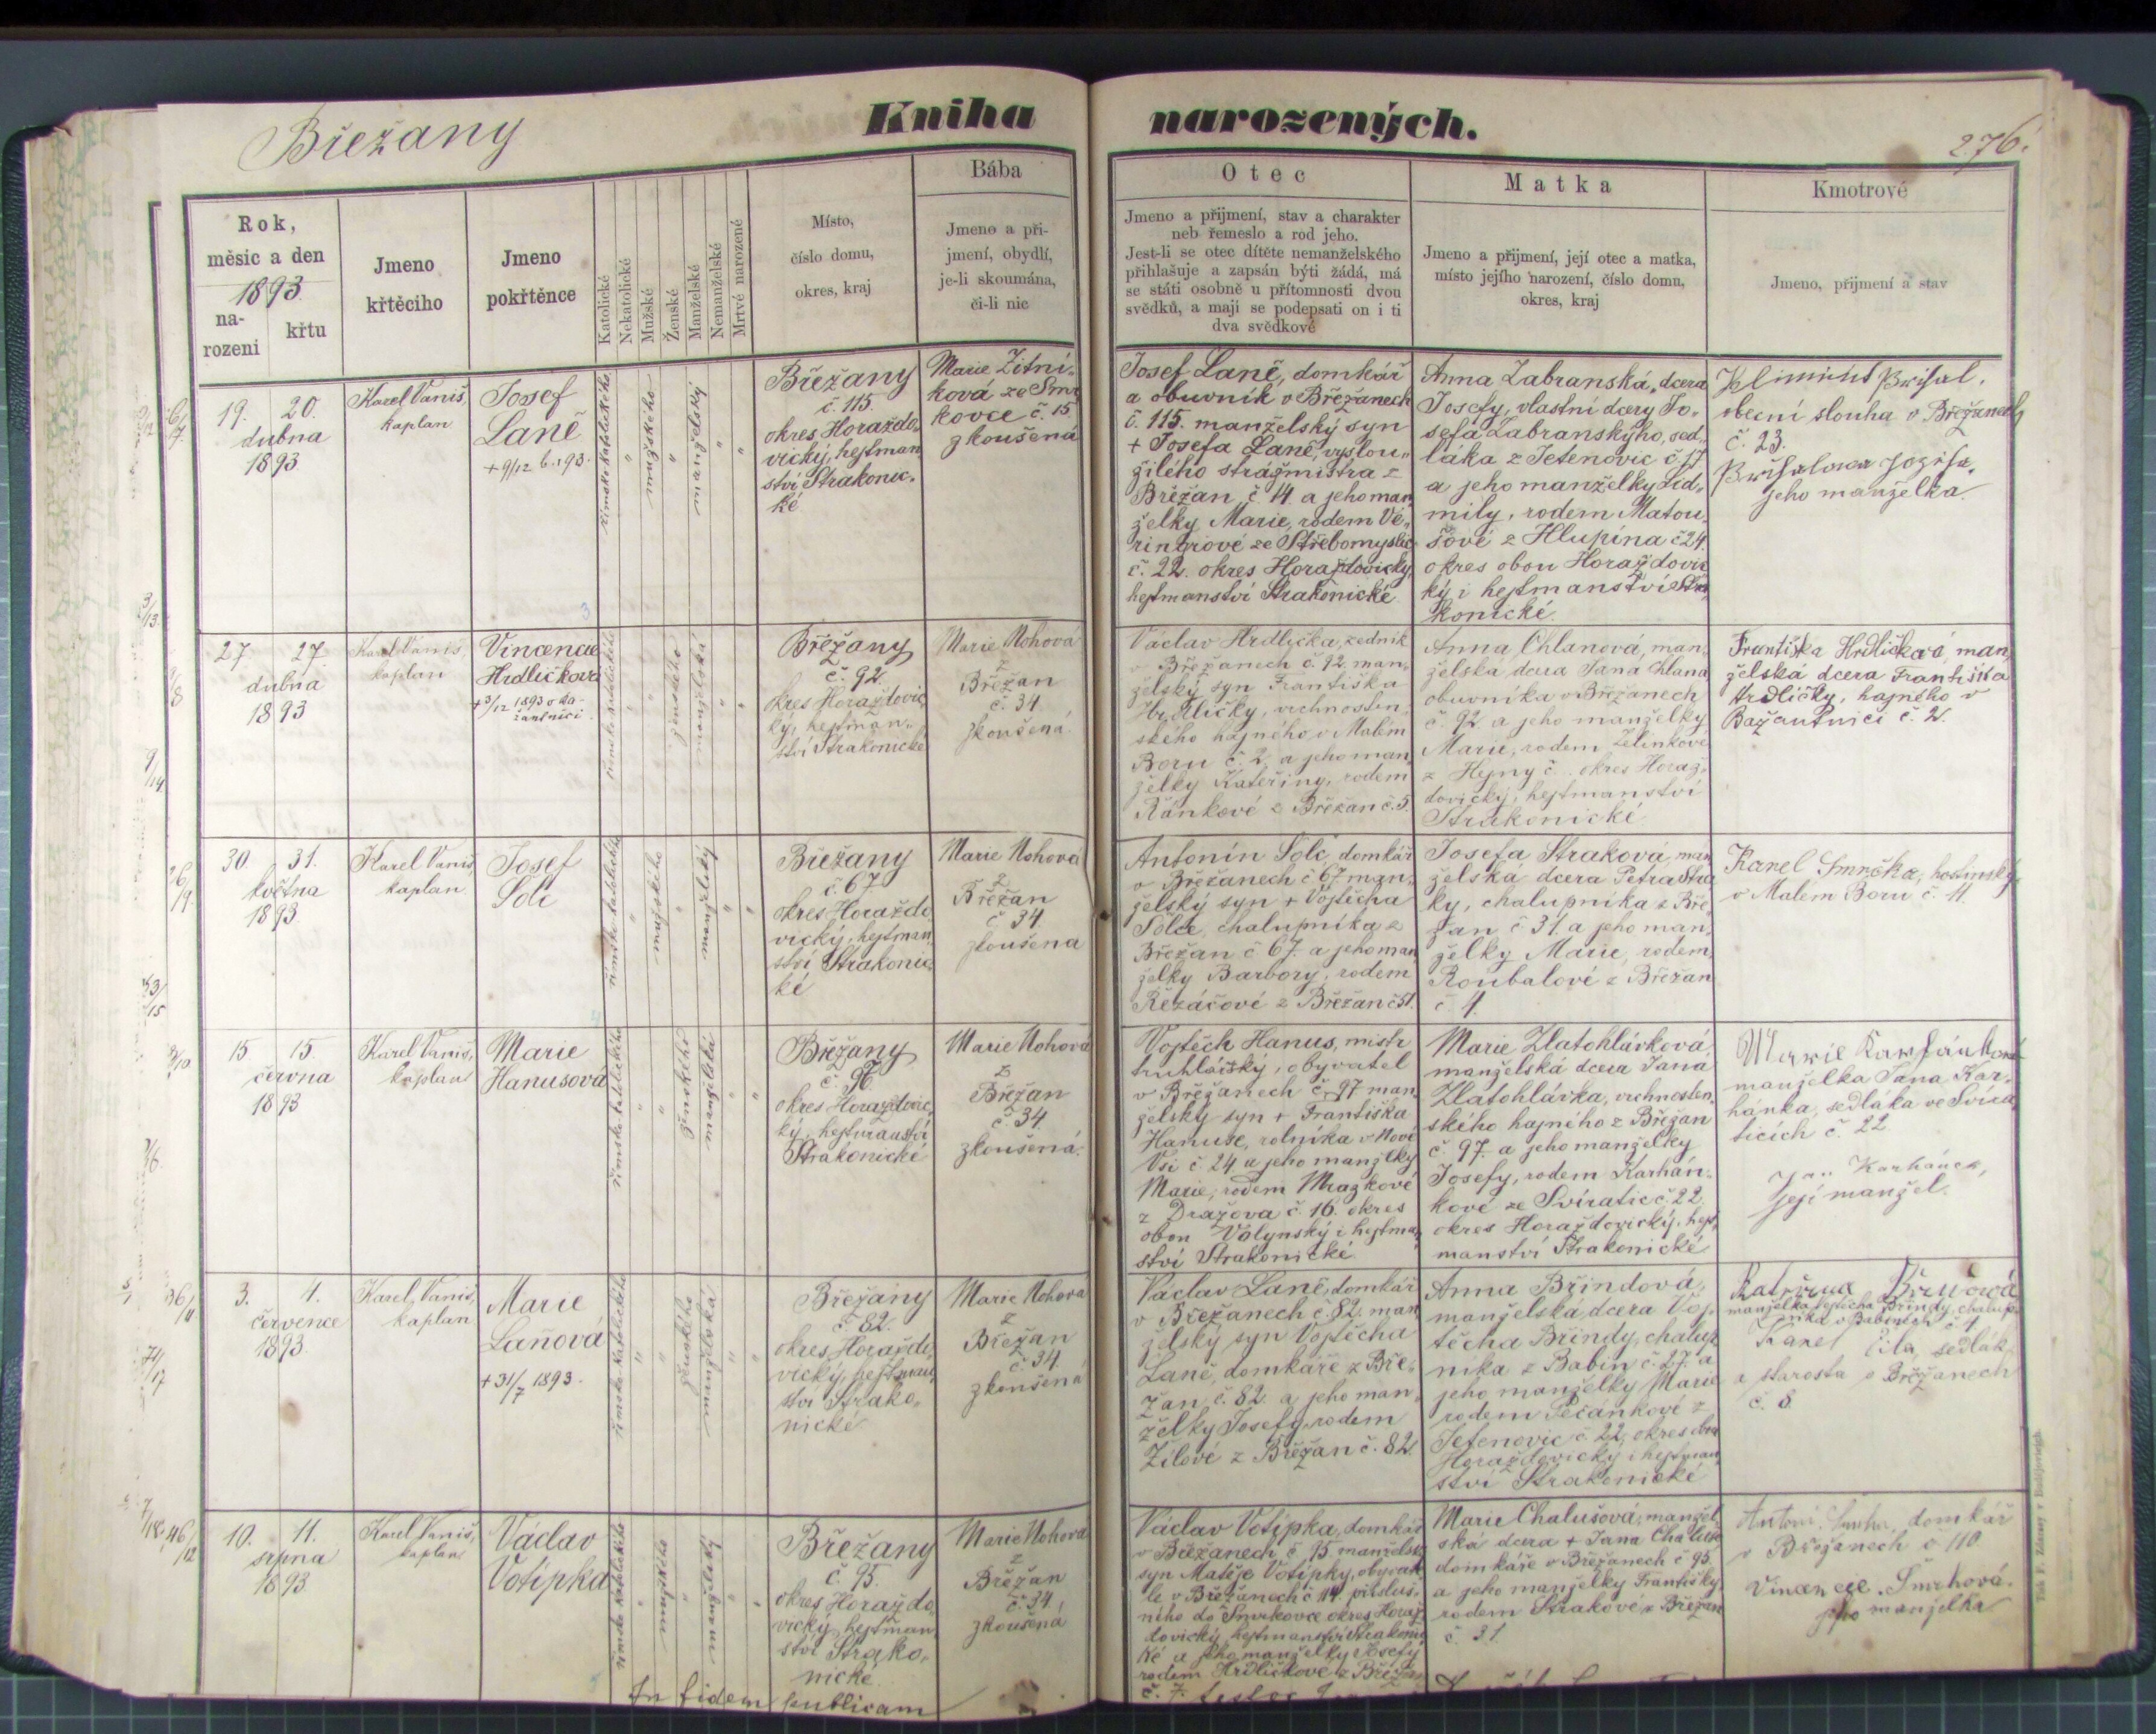 Břežany
Kniha narozených.
276.
Rok,
měsic a den
1893
na-
rozeni
křtu
Jmeno
křtěciho
Jmeno
pokřtěnce
Katolické
Nekatolické
Mužské
Ženské
Manželské
Nemanželské
Mrtvé narozené
Místo,
číslo domu,
okres, kraj
Bába
Jmeno a při-
jmení, obydlí,
je-li skoumána,
či-li nic
Otec
Jmeno a přijmení, stav a charakter
neb řemeslo a rod jeho.
Jest-li se otec dítěte nemanželského
přihlašuje a zapsán býti žádá, má
se státi osobně u přítomnosti dvou
svědků, a mají se podepsati on i ti
dva svědkové
Matka
Jmeno a přijmení, její otec a matka,
místo jejího narození, číslo domu,
okres, kraj
Kmotrové
Jmeno, přijmení a stav
19. 20.
dubna
1893
Karel Vaniš,
kaplan
Josef
Laně
+ 9/12
římsko-katolického
mužského
manželský
Břežany
č. 115.
okres Horaždo-
vický, hejtman
ství Strakonic-
ké
Marie Žitní-
ková ze Smr
kovce č. 15.
zkoušená
Josef Laně, domkář
a obuvník v Břežanech
č. 115. manželský syn
+ Josefa Laně, vyslou-
žilého strážmistra z
Břežan č 14. a jeho man
želky Marie, rodem
ze Střebomyslic
č. 22. okres Horažďovický,
hejtmanství Strakonické
Anna Zabranská, dcera
Josefy, vlastní dcery Jo-
sefa Zabranskýho, sed-
láka z Jetenovic č. 17
a jeho manželky Lid-
mily, rodem Matou-
šové z Hlupína č 24.
okres obou Horaždovic
ký i hejtmanství Stra
konické
obecní slouha v Břežanech
č. 23.
jeho manželka.
27. 27.
dubna
1893
Karel Vaniš,
kaplan
Vincencie
Hrdličková
+ 3/12 1893
římsko-katolického
ženského
manželská
Břežany
č. 92
okres Horažďovic
ký, hejtman-
ství Strakonické
Marie Nohová
z
Břežan
č. 34.
zkoušená.
Václav Hrdlička, zedník
v Břežanech č. 92. man-
želský syn Františka
Hrdličky, vrchnosten-
ského hajného v Malém
Boru č. 2. a jeho man-
želky Kateřiny, rodem
z Břežan č. 5.
Anna Chlanová, man-
želská dcera Jana Chlana
obuvníka v Břežanech
č. 92 a jeho manželky
Marie, rodem Zelinkové
z Hejny č. okres Horaž-
dovický, hejtmanství
Strakonické
Františka Hrdličková, man
želská dcera Františka
Hrdličky, hajného v
Bažantnici č. 2.
30. 31.
května
1893
Karel Vaniš,
kaplan
Josef
Šolc
římsko-katolického
mužského
manželský
Břežany
č. 67
okres Horaždo
vický, hejtman,
ství Strakonic
ké
Marie Nohová
z
Břežan
č. 34.
zkoušená
Antonín Šolc, domkář
v Břežanech č 67. man-
želský syn + Vojtěcha
Šolce, chalupníka z
Břežan č 67. a jeho man
želky Barbory, rodem
Řezáčové z Břežan č 51.
Josefa Straková, man
želská dcera Petra Stra
ky, chalupníka z Bře
žan č 31. a jeho man-
želky Marie, rodem
Roubalové z Břežan
č 4.
Karel Smrčka, hostinský
v Malém Boru č. 11.
15. 15.
června
1893
Karel Vaniš,
kaplan
Marie
Hanusová
římsko-katolického
ženského
manželská
Břežany
č. 96
okres Horažďovic
ký, hejtmanství
Strakonické
Marie Nohová
z
Břežan
č. 34.
zkoušená.
Vojtěch Hanus, mistr
truhlářský, obyvatel
v Břežanech č. 97 man
želský syn + Františka
Hanuse, rolníka v Nové
Vsi č 24 a jeho manželky
Marie, rodem Mrazkové
z Dražova č. 16. okres
obou Volynský i hejtman
ství Strakonické
Marie Zlatohlávková
manželská dcera Jana
Zlatohlávka, vrchnosten-
ského hajného z Břežan
č. 97. a jeho manželky
Josefy, rodem Karhán-
kové ze Svíratic č. 22.
okres Horaždovický, hejt
manství Strakonické
Marie Karhánková
manželka Jana Kar-
hánka, sedláka ve Svíra
ticích č. 22.
Jan Karhánek,
její manžel.
3. 4.
července
1893
Karel Vaniš,
kaplan
Marie
Laňová
+ 31/7 1893.
římsko-katolického
ženského
manželská
Břežany
č. 82.
okres Horaždo
vický, hejtman
ství Strako-
nické
Marie Nohová
z
Břežan
č. 34.
zkoušená
Václav Laně, domkář
v Břežanech č. 82. man
želský syn Vojtěcha
Laně, domkáře z Bře-
žan č. 82. a jeho man-
želky Josefy, rodem
Žilové z Břežan č. 82.
Anna Břindová,
manželská dcera Voj-
těcha Brindy, chalup
níka z Babín č. 27. a
jeho manželky Marie
rodem Pečánkové z
Jetenovic č. 22, okres obou
Horaždovický i hejtman
ství Strakonické
Kateřina Břindová
manželka Vojtěcha Břindy, chalup-
níka v Babínech č. 4
Karel Žila, sedlák
a starosta v Břežanech
č. 8.
10. 11.
srpna
1893
Karel Vaniš,
kaplan
Václav
Votípka
římsko-katolického
mužského
manželský
Břežany
č. 95.
okres Horaždo-
vický, hejtman,
ství Strako-
nické.
Marie Nohová
z
Břežan
č. 34.
zkoušená
Václav Votípka, domkář
v Břežanech č 95. manželský
syn Matěje Votípky, obyvate
le v Břežanech č 114. přísluš-
ného do Smrkovce okres Horaž
dovický hejtmanství Strakonic
ké a jeho manželky Josefy
rodem Hrdličkové z Břežan
č. 7.
Marie Chalušová, manžel
ská dcera + Jana Chaluše
domkáře v Břežanech č 95.
a jeho manželky Františky,
rodem Strakové z Břežan
č. 31.
domkář
v Břežanech č 110
Vincencie Smrhová.
jeho manželka
In fidem publicam